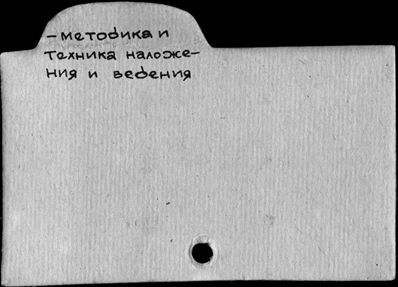 – методика и
техника наложе–
ния и ведения